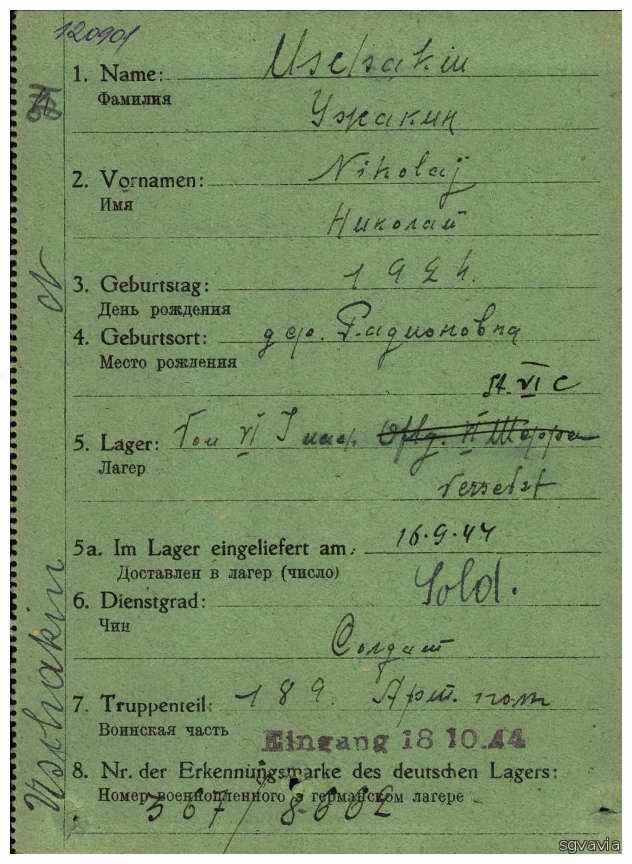 120901
1. Name: Uschakin
Фамилия
Ужакин
2. Vornamen: Nikolaj
Имя
Николай
3. Geburtstag: 1924.
День рождения
4. Geburtsort: дер. Радионовка
Место рождения
St. VI C
5. Lager: VI J Oflg. VI
Лагер
Versetzt
5a. Im Lager eingeliefert am: 16.9.44
Доставлен в лагер (число)
6. Dienstgrad: Sold.
Чин
Солдат
7. Truppenteil: 189. Арт. полк
Воинская часть
Eingang 18 10.44
8. Nr. der Erkennungsmarke des deutschen Lagers:
Номер военнопленного в германском лагере
367/8662
Uschakin N
sgvavia